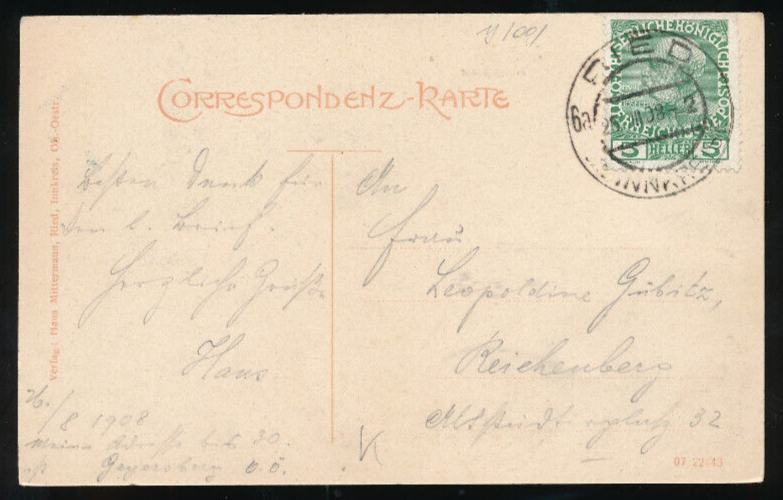 y 1001
CORRESPONDENZ-KARTE
KAISERLICHE KÖNIGLICHE
ÖSTERREICHISCHE
5 HELLER 5
RIED
6a
INNKREIS
Verlag: Hans Mittermann, Ried, Innkreis, Ob.-Oestr.
Besten Dank für
den l. Brief.
Herzliche Grüße
Hans
26./8 1908
Meine Adresse bis 30.
ist Geyersberg O.Ö.
An
Frau
Leopoldine Gubitz,
Reichenberg
Altstädterplatz 32
K
07 22343